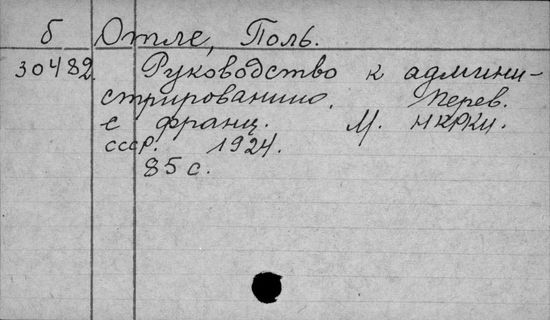 б Отле, Поль.
30482. Руководство к админи-
стрированию. Перев.
с франц. М. НКРКИ
СССР. 1924.
85 с.